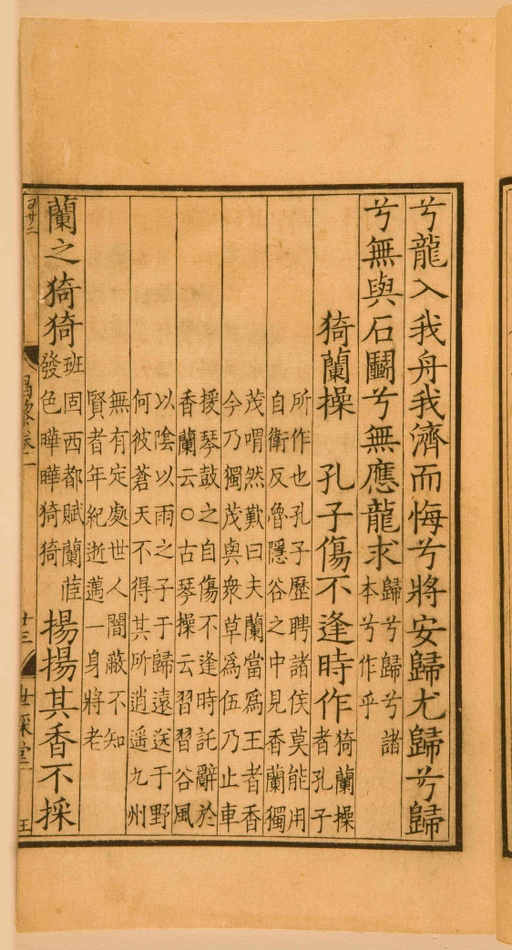 兮龍入我舟我濟而悔兮將安歸尤歸兮歸
兮無與石鬭兮無應龍求歸兮歸兮諸
本兮作乎
猗蘭操　孔子傷不逢時作猗蘭操
者孔子
所作也孔子歷聘諸侯莫能用
自衛反魯隱谷之中見香蘭獨
茂喟然歎曰夫蘭當爲王者香
今乃獨茂與衆草爲伍乃止車
援琴鼓之自傷不逢時託辭於
香蘭云○古琴操云習習谷風
以隂以雨之子于歸遠送于野
何彼蒼天不得其所逍遥九州
無有定處世人闇蔽不知
賢者年紀逝邁一身將老
蘭之猗猗班固西都賦蘭茝
發色曄曄猗猗
揚揚其香不採